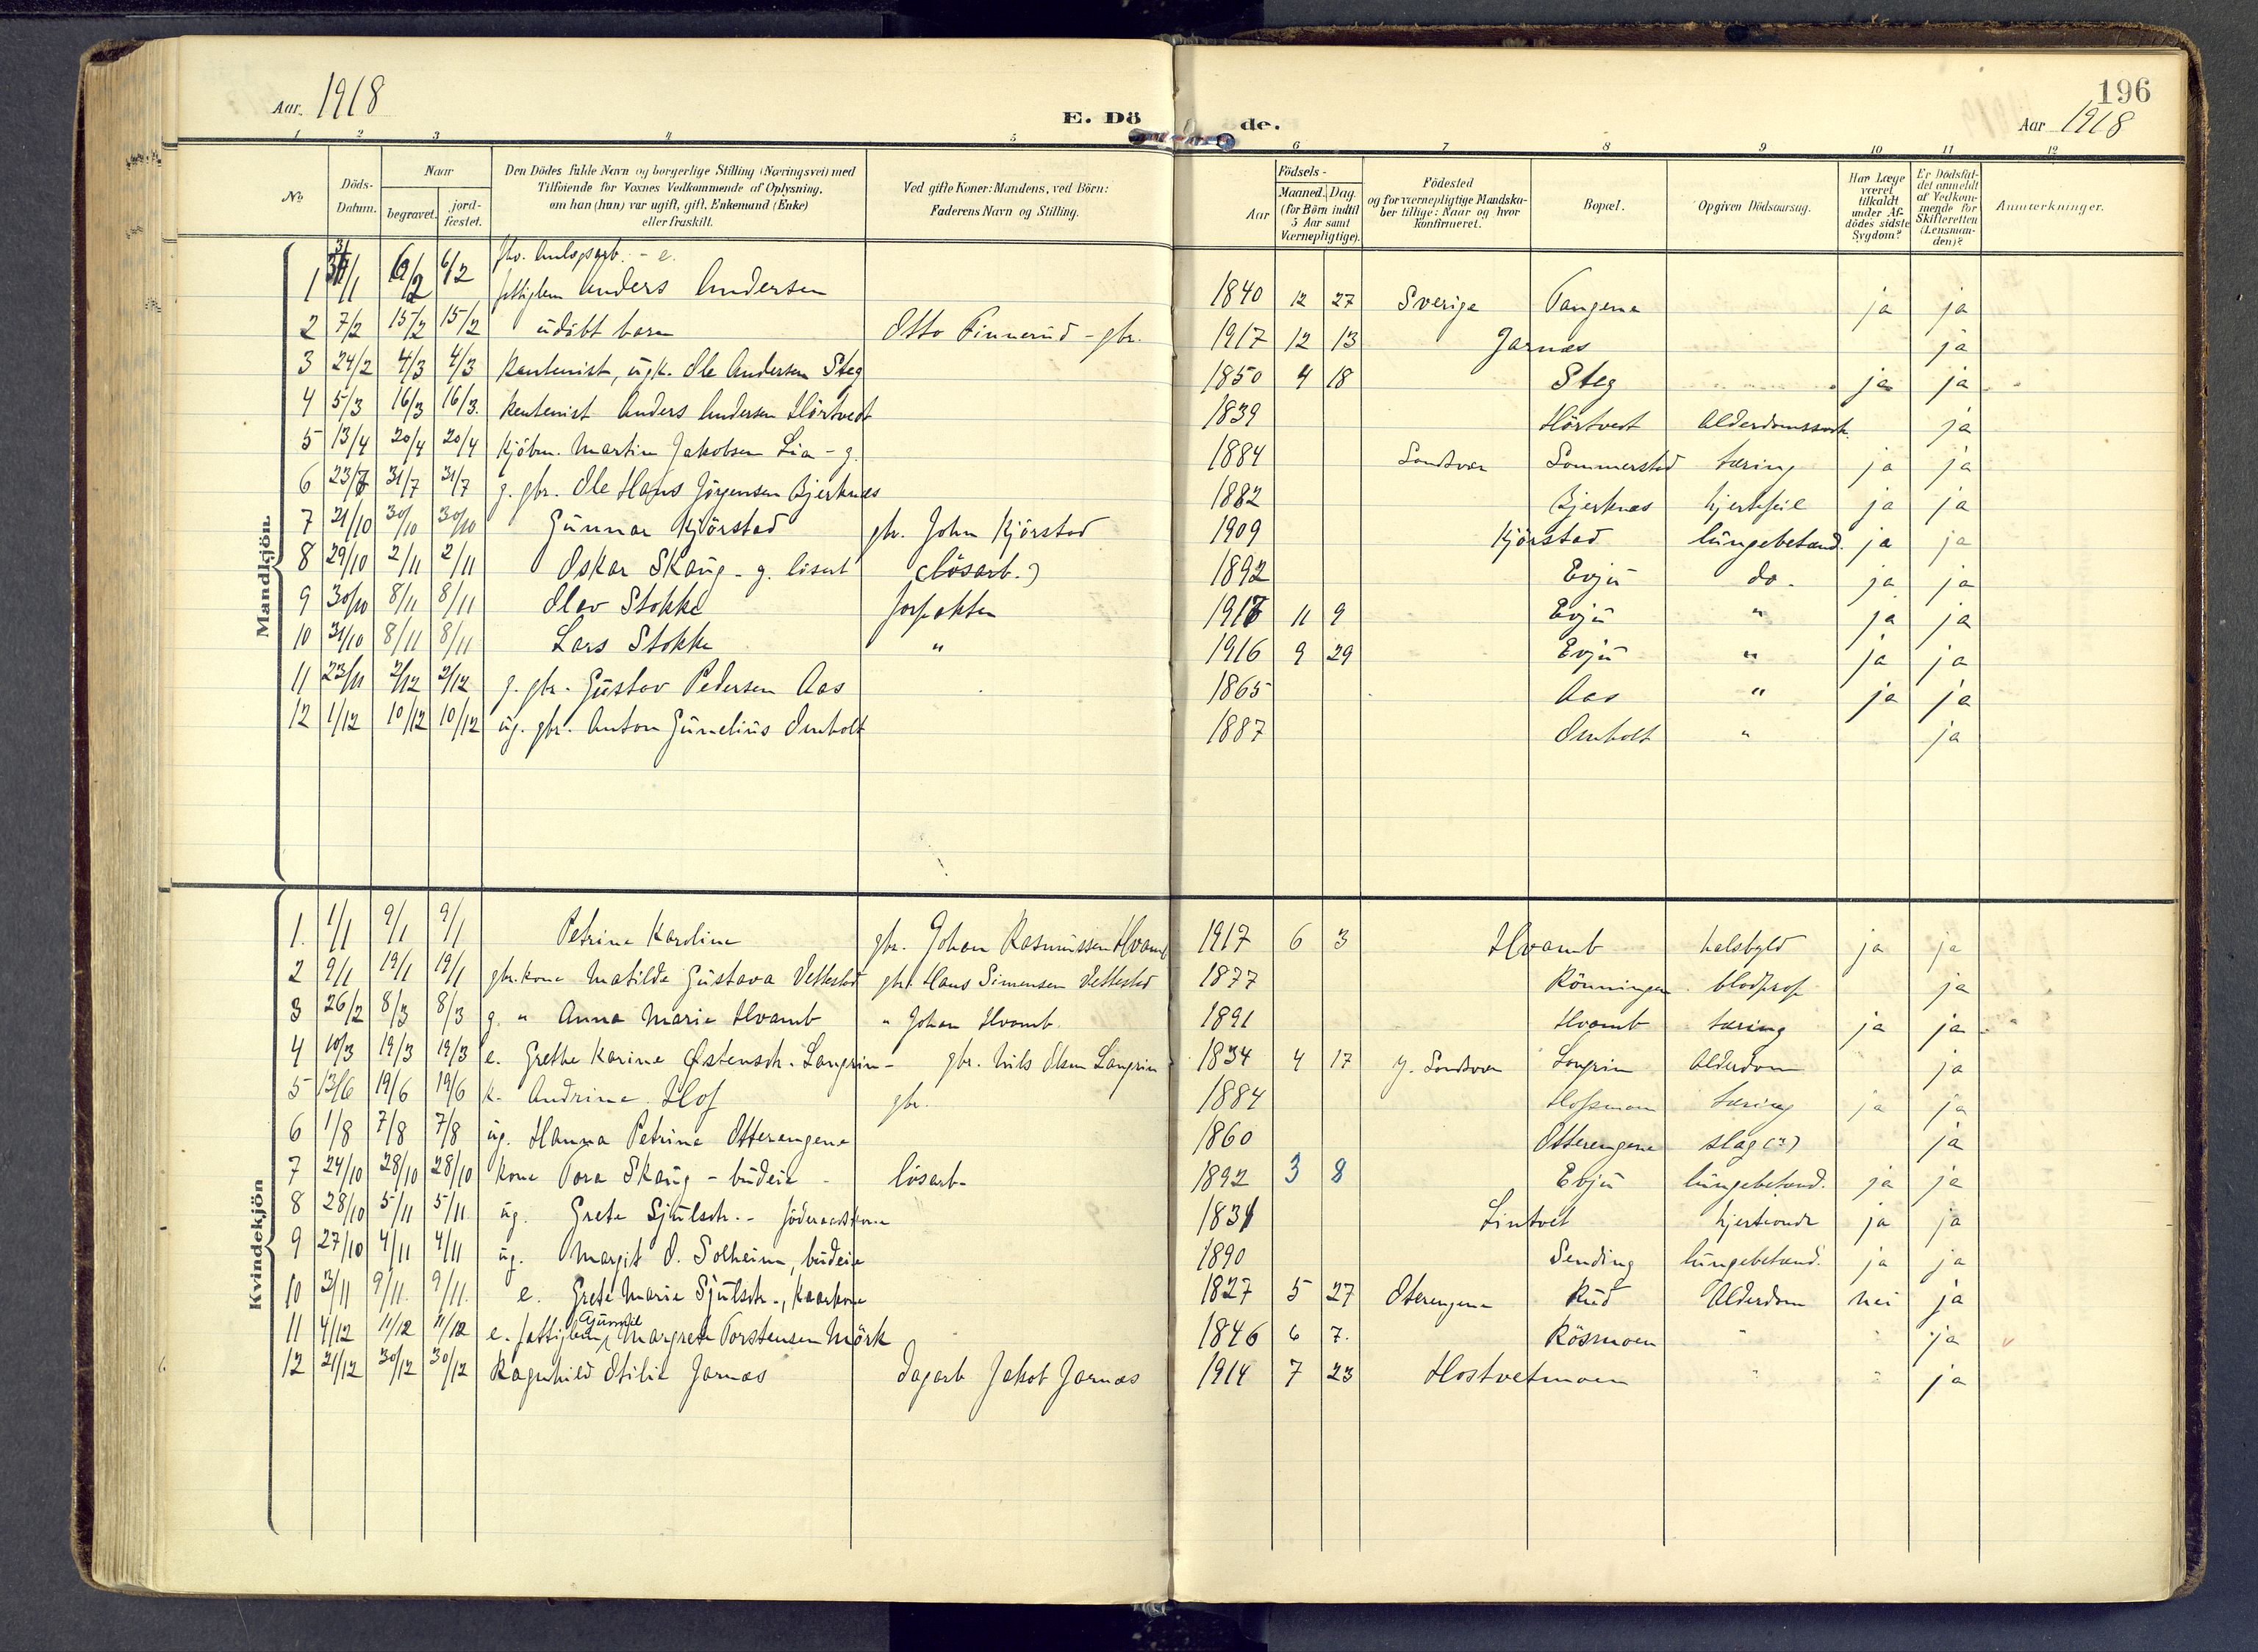 Aar 1918
E. Döde.
196
Aar 1918
1 2 3 4 5 6 7 8 9 10 11 12
No
Döds-Datum.
Naar
begravet.
jord-fæstet.
Den Dödes fulde Navn og borgerlige Stilling (Næringsvei) med
Tilföiende for Voxnes Vedkommende af Oplysning,
om han (hun) var ugift, gift, Enkemand (Enke)
eller fraskilt.
Ved gifte Koner: Mandens, ved Börn:
Faderens Navn og Stilling.
Aar
Födsels-
Maaned. Dag.
(for Börn indtil
5 Aar samt
Værnepligtige).
Födested
og for værnepligtige Mandska-
ber tillige: Naar og hvor
konfirmeret.
Bopæl.
Opgiven Dödsaarsag.
Har Læge
været
tilkaldt
under Af-
dödes sidste
Sygdom?
Er Dödsfal-
det anmeldt
af Vedkom-
mende for
Skifteretten
(Lensman-
den)?
Anmærkninger.
Mandkjön.
1 31/1 6/2 6/2 fhv. Anlegsarb. - e. fattiglem Anders Andersen 1840 12 27 Sverige Tangena ja ja
2 7/2 15/2 15/2 udöbt barn Otto Finnerud - gbr. 1917 12 13 Jarnæs ja
3 24/2 4/3 4/3 Rentenist, ugk. Ole Andersen Steg 1850 4 18 Steg ja ja
4 5/3 16/3 16/3. Rentenist Anders Andersen Hörtvedt 1839 Hörtvedt Alderdomssvak. ja
5 13/4 20/4 20/4 Kjöbm. Martin Jakobsen Lia - g. 1884 Sandsvær Sommerstad tæring ja ja
6 23/7 31/7 31/7 g. gbr. Ole Hans Jörgensen Bjerknæs 1882 Bjerknæs hjertefeil ja ja
7 21/10 30/10 30/10 Gunnar Kjörstad gbr. John Kjörstad 1909 Kjörstad lungebetænd. ja ja
8 29/10 2/11 2/11 Oskar Skaug - g. lösarb (lösarb.) 1892 Evju do. ja ja
9 30/10 8/11 8/11 Olav Stokke Forpakter 1917 11 9 Evju " ja ja
10 31/10 8/11 8/11 Lars Stokke " 1916 9 29 Evju " ja ja
11 23/11 2/12 2/12 g. gbr. Gustav Pedersen Aas 1865 Aas " ja ja
12 1/12 10/12 10/12 ug. gbr. Anton Gunelius Ornholt 1887 Ornholt " ja
Kvindekjön
1. 1/1 9/1 9/1 Petrine Karoline gbr. Johan Rasmussen Hvamb 1917 6 3 Hvamb halsbyld ja ja
2 9/1 19/1 19/1 gbr.kone Matilde Gustava Vettestad gbr. Hans Simensen Vettestad 1877 Rönningen blodprop ja
3 26/2 8/3 8/3 g. " Anna Marie Hvamb " Johan Hvamb. 1891 Hvamb tæring ja ja
4 10/3 19/3 19/3 e. Grethe Karine Østensdr. Langrin - gbr. Nils Olsen Langrin 1834 4 17 Y. Sandsvær Langrin Alderdom ja
5 13/6 19/6 19/6 k. Andrine Hof gbr. 1884 Hofsmoen tæring ja ja
6 1/8 7/8 7/8 ug. Hanna Petrine Otterengene 1860 Otterengene slag (?) ja
7 24/10 28/10 28/10 kone Tora Skaug - budeie - lösarb- 1892 3 8 Evju lungebetænd. ja ja
8 28/10 5/11 5/11 ug. Grete Sjulsdr. - föderaadskone 1831 Lintvet hjerteonde ja ja
9 27/10 4/11 4/11 ug. Margit O. Solheim, budeie 1890 Sending lungebetænd. ja ja
10 3/11 9/11. 9/11. e. Grete Marie Sjulsdr., kaarkone 1827 5 27 Oterengene Rud Alderdom nei ja
11 4/12 11/12 11/12 e. fattiglem, Gunnil Margrete Torstensen Mörk 1846 6 7. Rösmoen " " ja
12 21/12 30/12 30/12 Ragnhild Otilie Jarnæs Dagarb Jakob Jarnæs 1914 7 23 Hostvetmoen " " ja